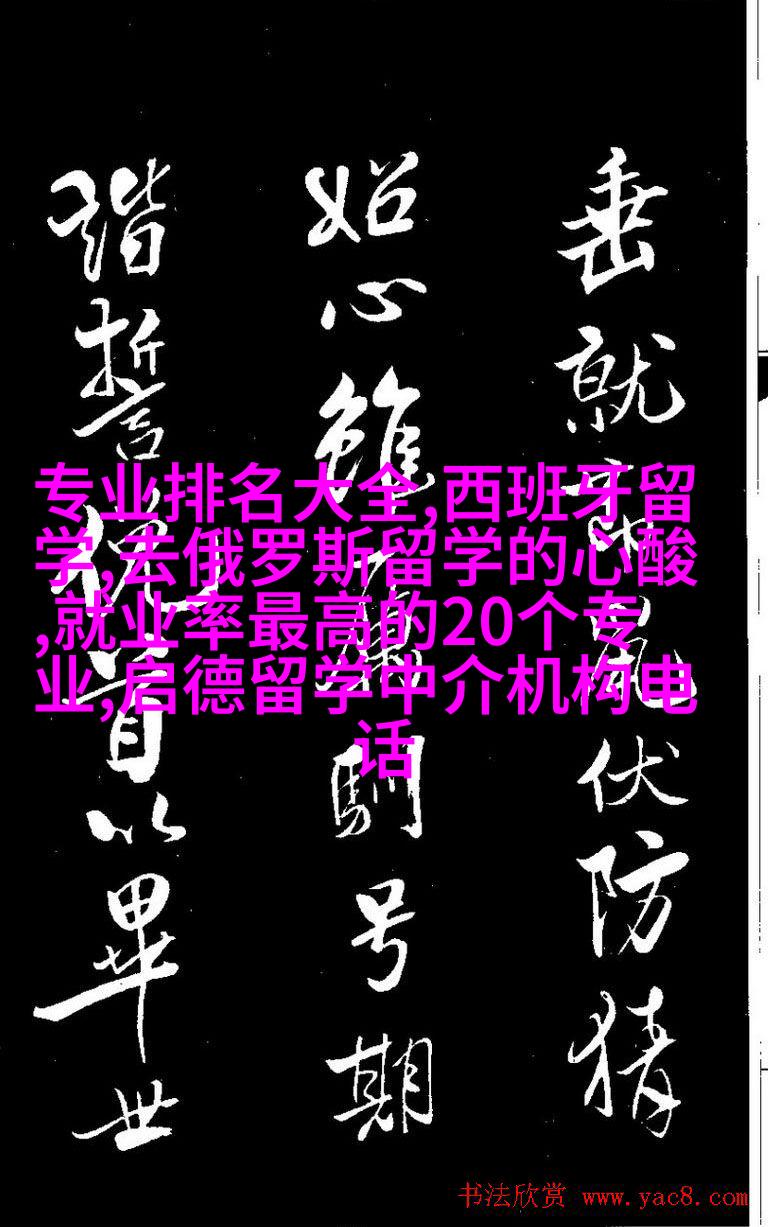 垂就郎晃伏防猜
妬心雖馴号期
階誓偕以畢世
专业排名大全,西班牙留
学,去俄罗斯留学的心酸
,就业率最高的20个专
业,启德留学中介机构电
话
书法欣赏 www.yac8.com